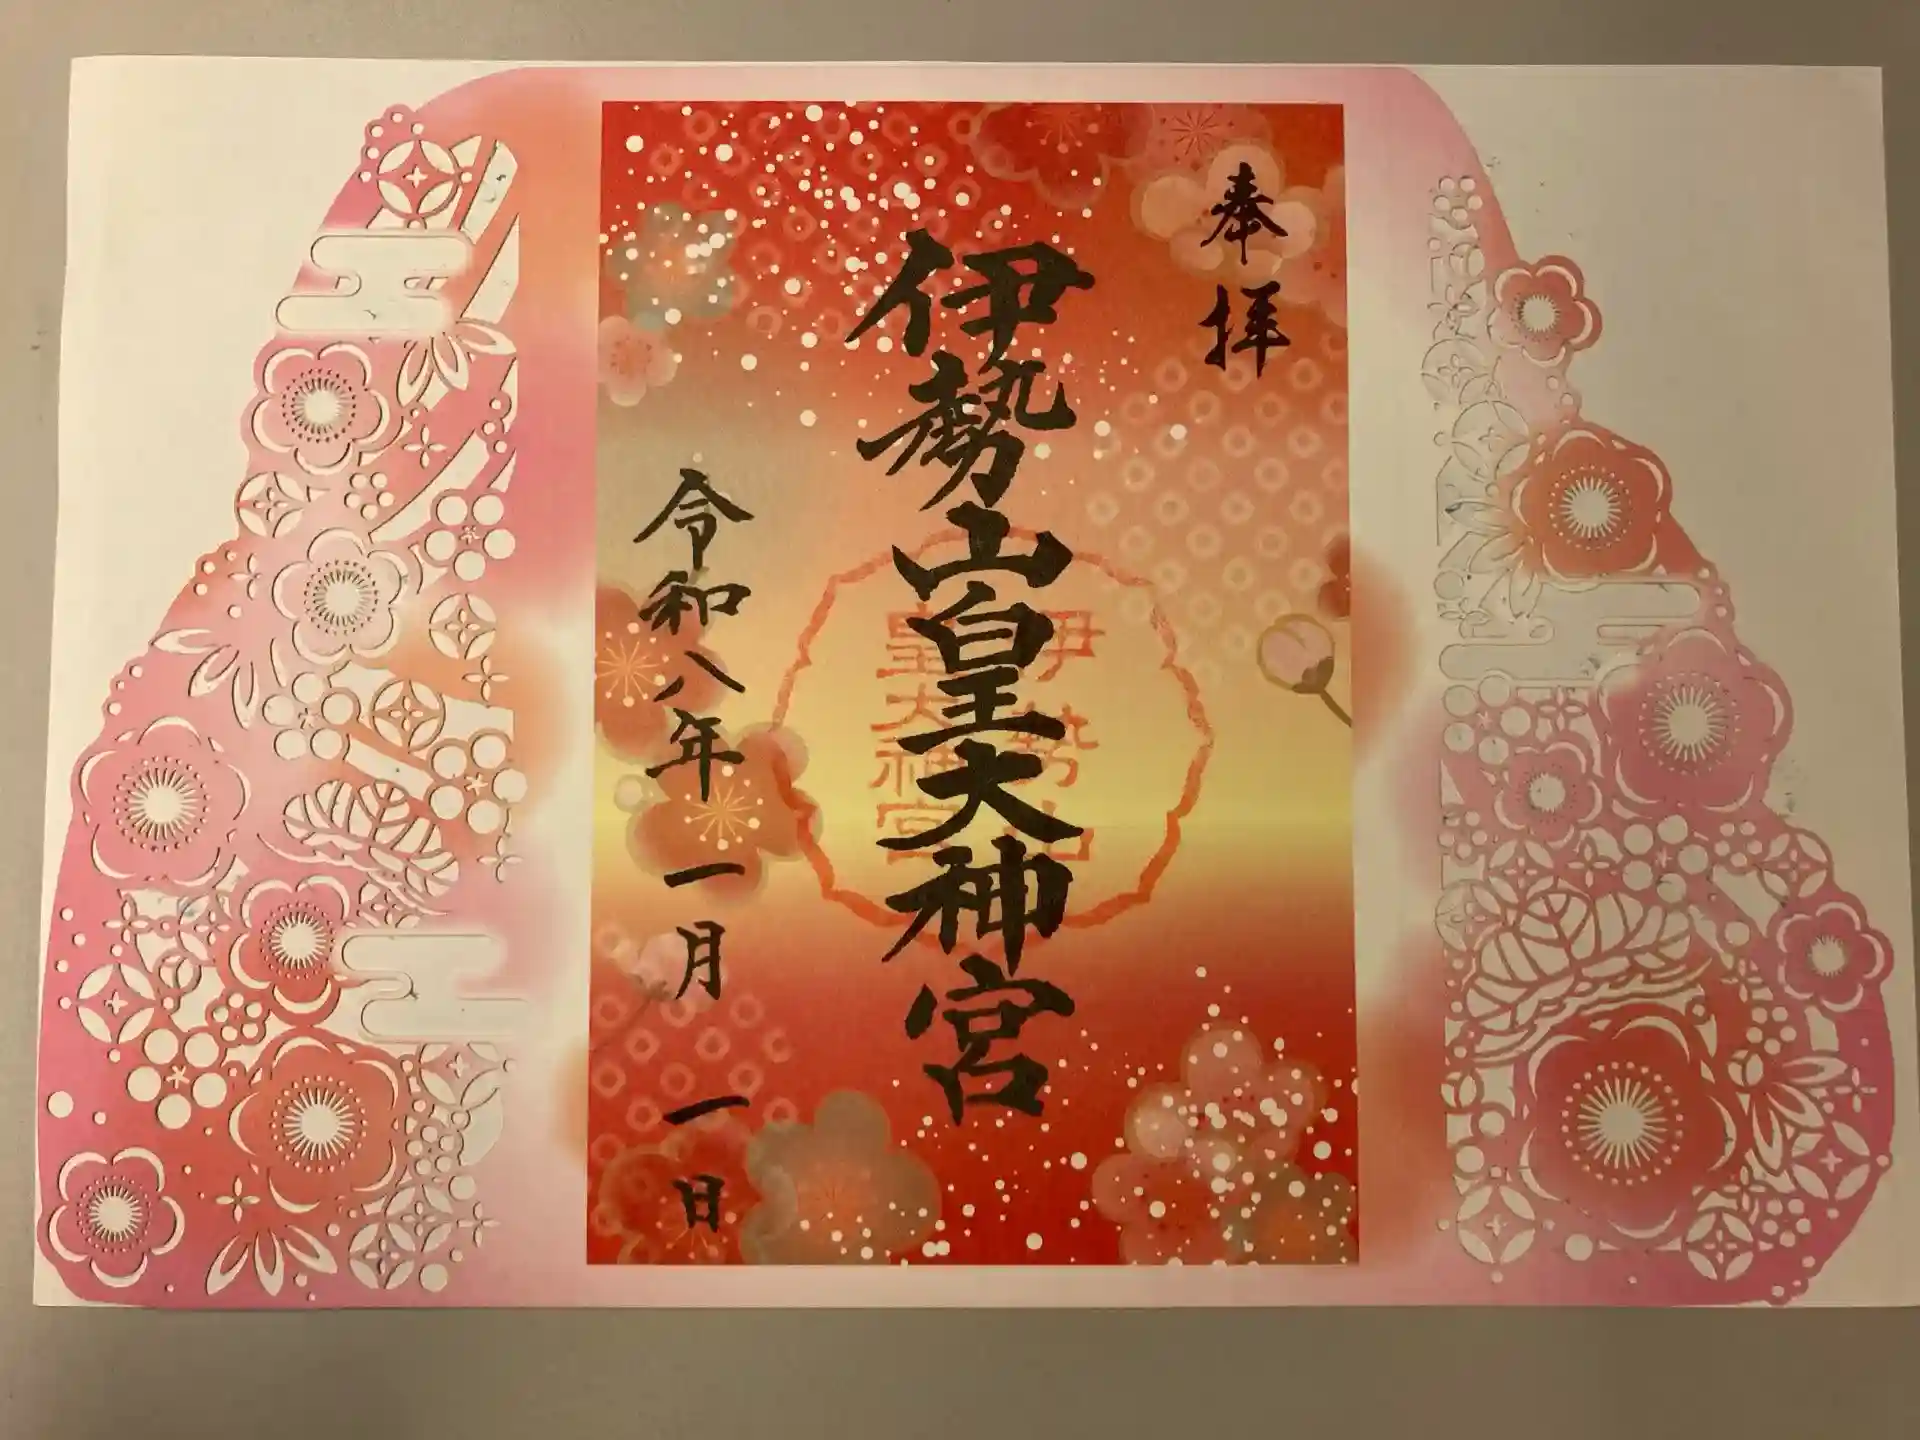 奉拝
伊勢山皇大神宮
伊勢山
皇大神宮
令和八年一月一日